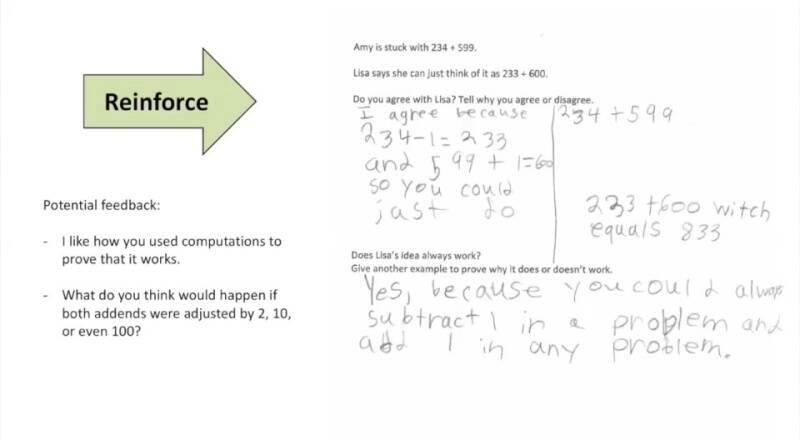 Reinforce
Potential feedback:
- I like how you used computations to
prove that it works.
- What do you think would happen if
both addends were adjusted by 2, 10,
or even 100?
Amy is stuck with 234 + 599.
Lisa says she can just think of it as 233 + 600.
Do you agree with Lisa? Tell why you agree or disagree.
I agree because
234-1=233
and 599 + 1=600
so you could
just do
234+599
233+600 witch
equals 833
Does Lisa's idea always work?
Give another example to prove why it does or doesn't work.
Yes, because you could always
subtract 1 in a problem and
add 1 in any problem.